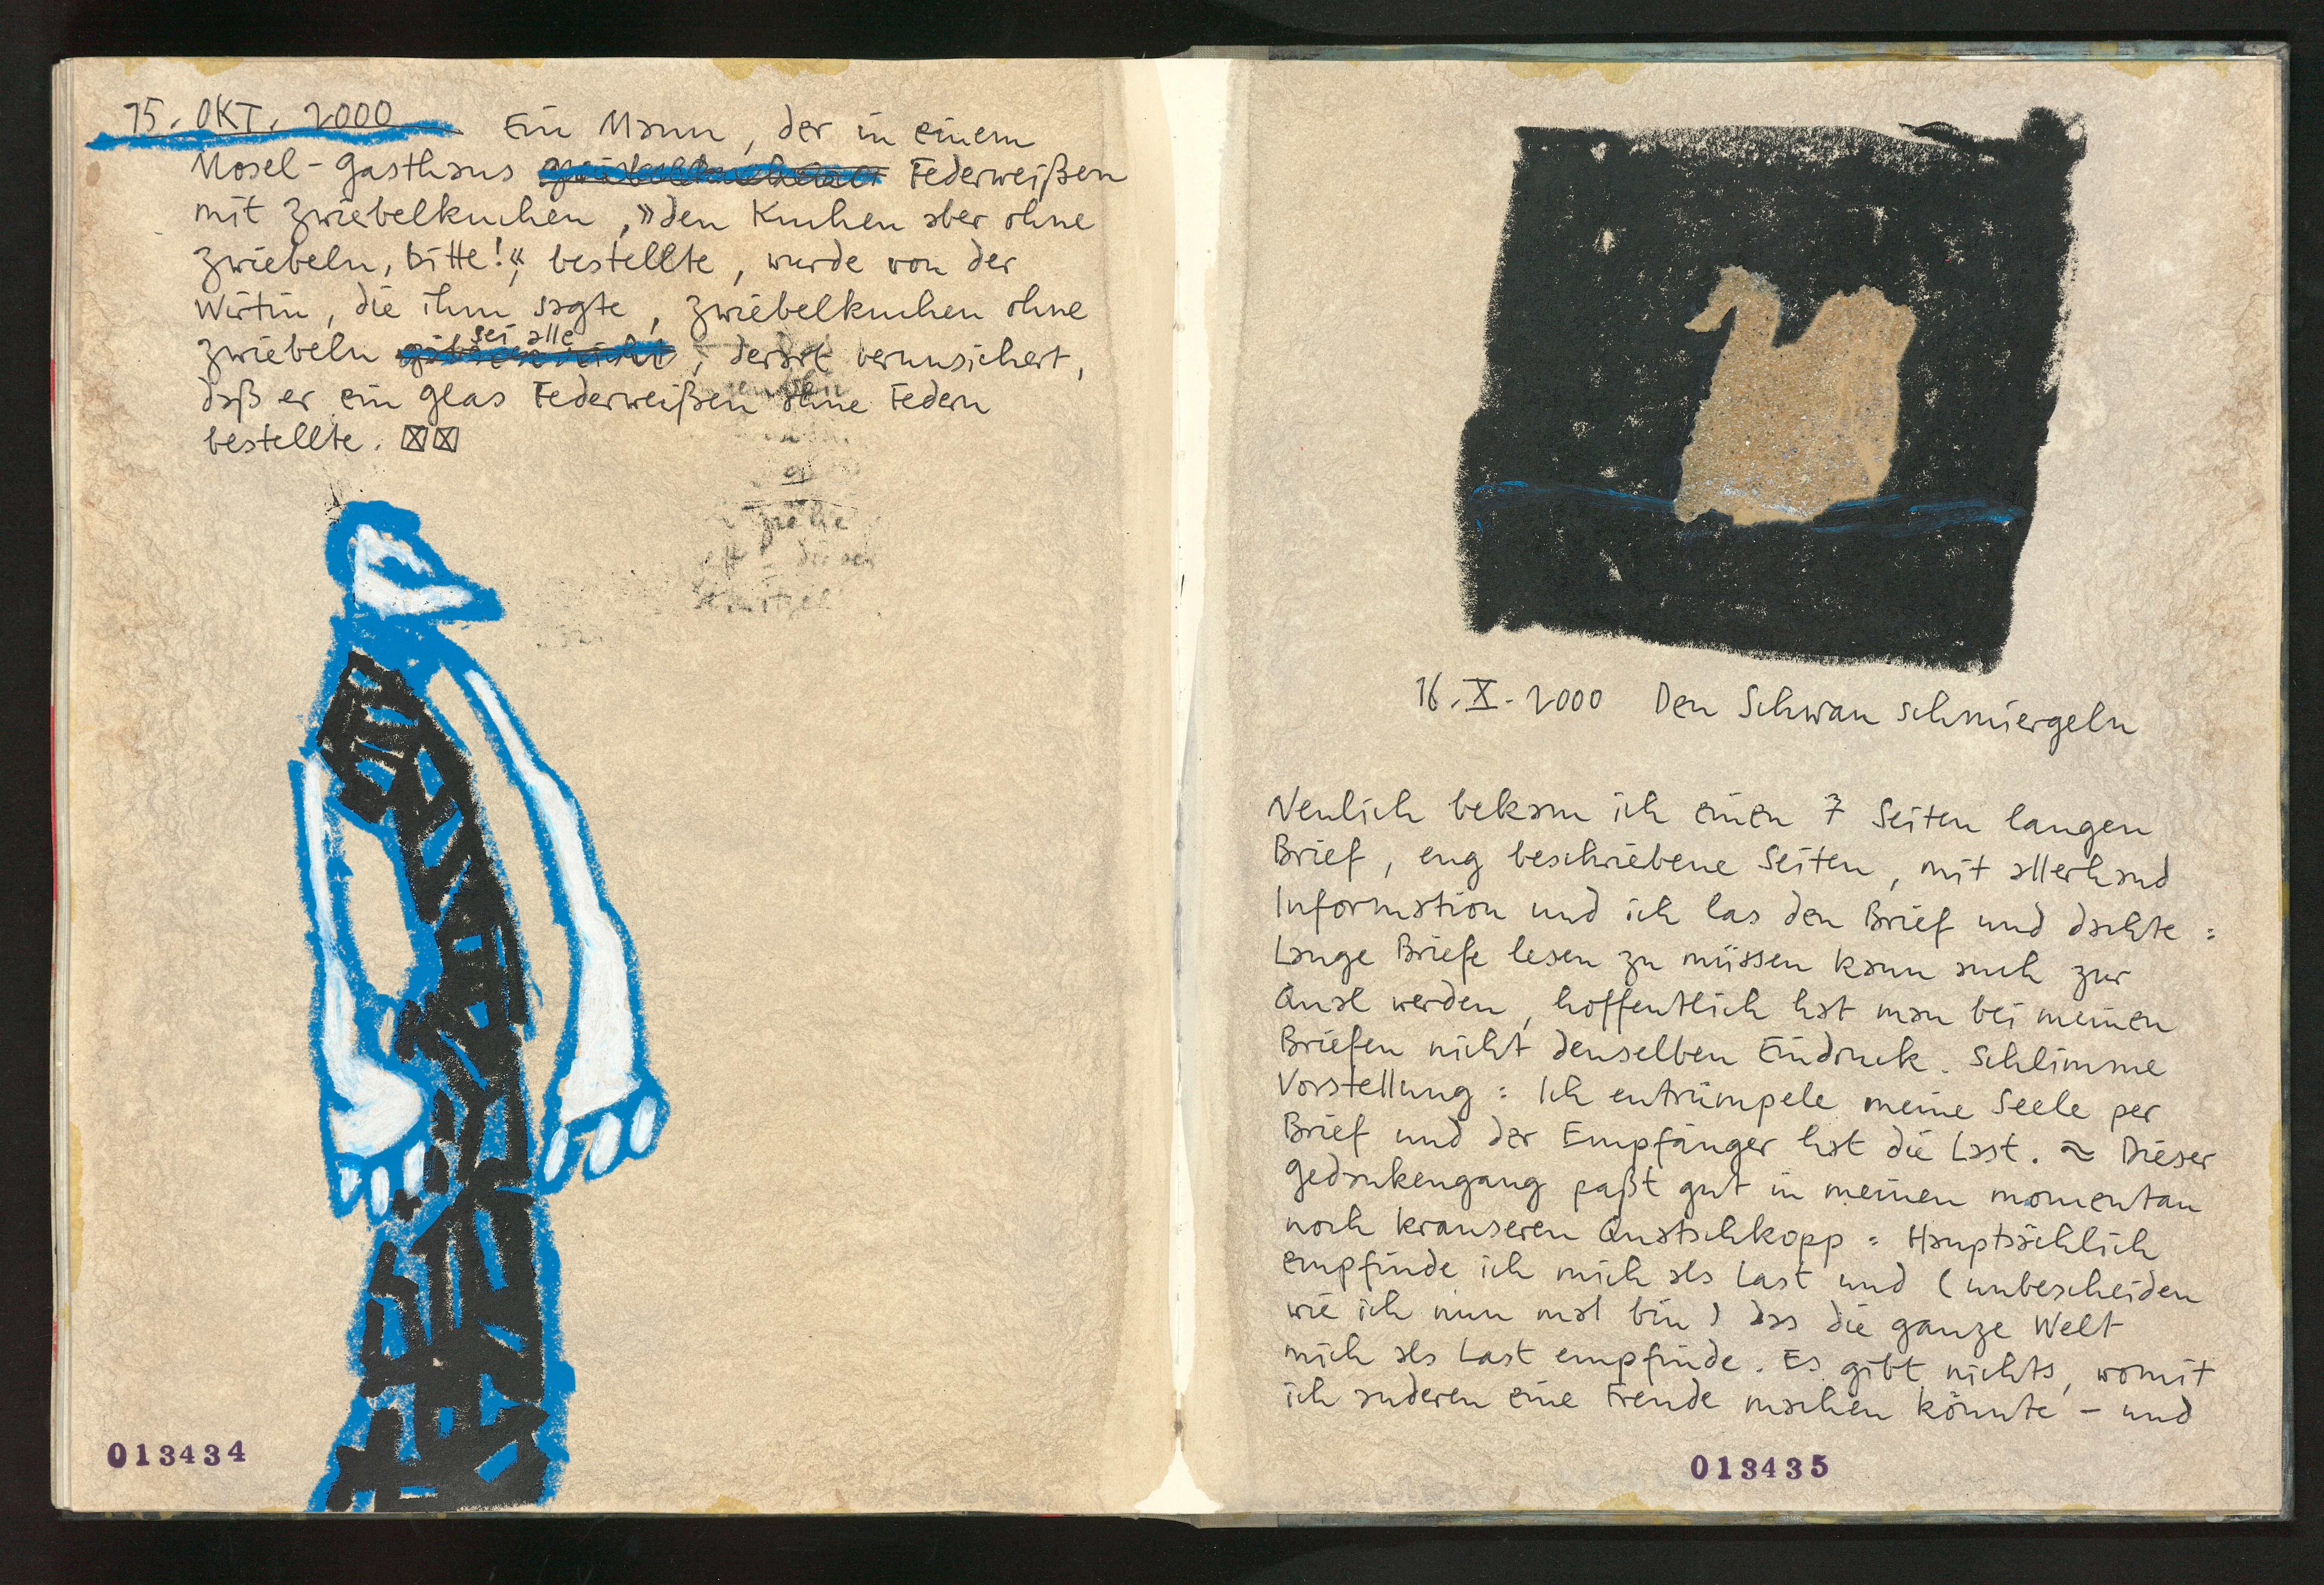 15. OKT. 2000 Ein Mann, der in einem
Mosel-Gasthaus Federweißen
mit Zwiebelkuchen, »den Kuchen aber ohne
Zwiebeln, bitte!«, bestellte, wurde von der
Wirtin, die ihm sagte, Zwiebelkuchen ohne
sei alle
Zwiebeln gäbe es nicht, derart verunsichert,
daß er ein Glas Federweißen ohne Federn
bestellte.
013434
16.X.2000 Den Schwan schmiergeln
Neulich bekam ich einen 7 Seiten langen
Brief, eng beschriebene Seiten, mit allerhand
Information und ich las den Brief und dachte:
Lange Briefe lesen zu müssen kann auch zur
Qual werden, hoffentlich hat man bei meinen
Briefen nicht denselben Eindruck. Schlimme
Vorstellung: Ich entrümpele meine Seele per
Brief und der Empfänger hat die Last. ≈ Dieser
Gedankengang paßt gut in meinen momentan
noch krauseren Quatschkopp: Hauptsächlich
empfinde ich mich als Last und (unbescheiden
wie ich nun mal bin) das die ganze Welt
mich als Last empfinde. Es gibt nichts, womit
ich anderen eine Freude machen könnte – und
013435